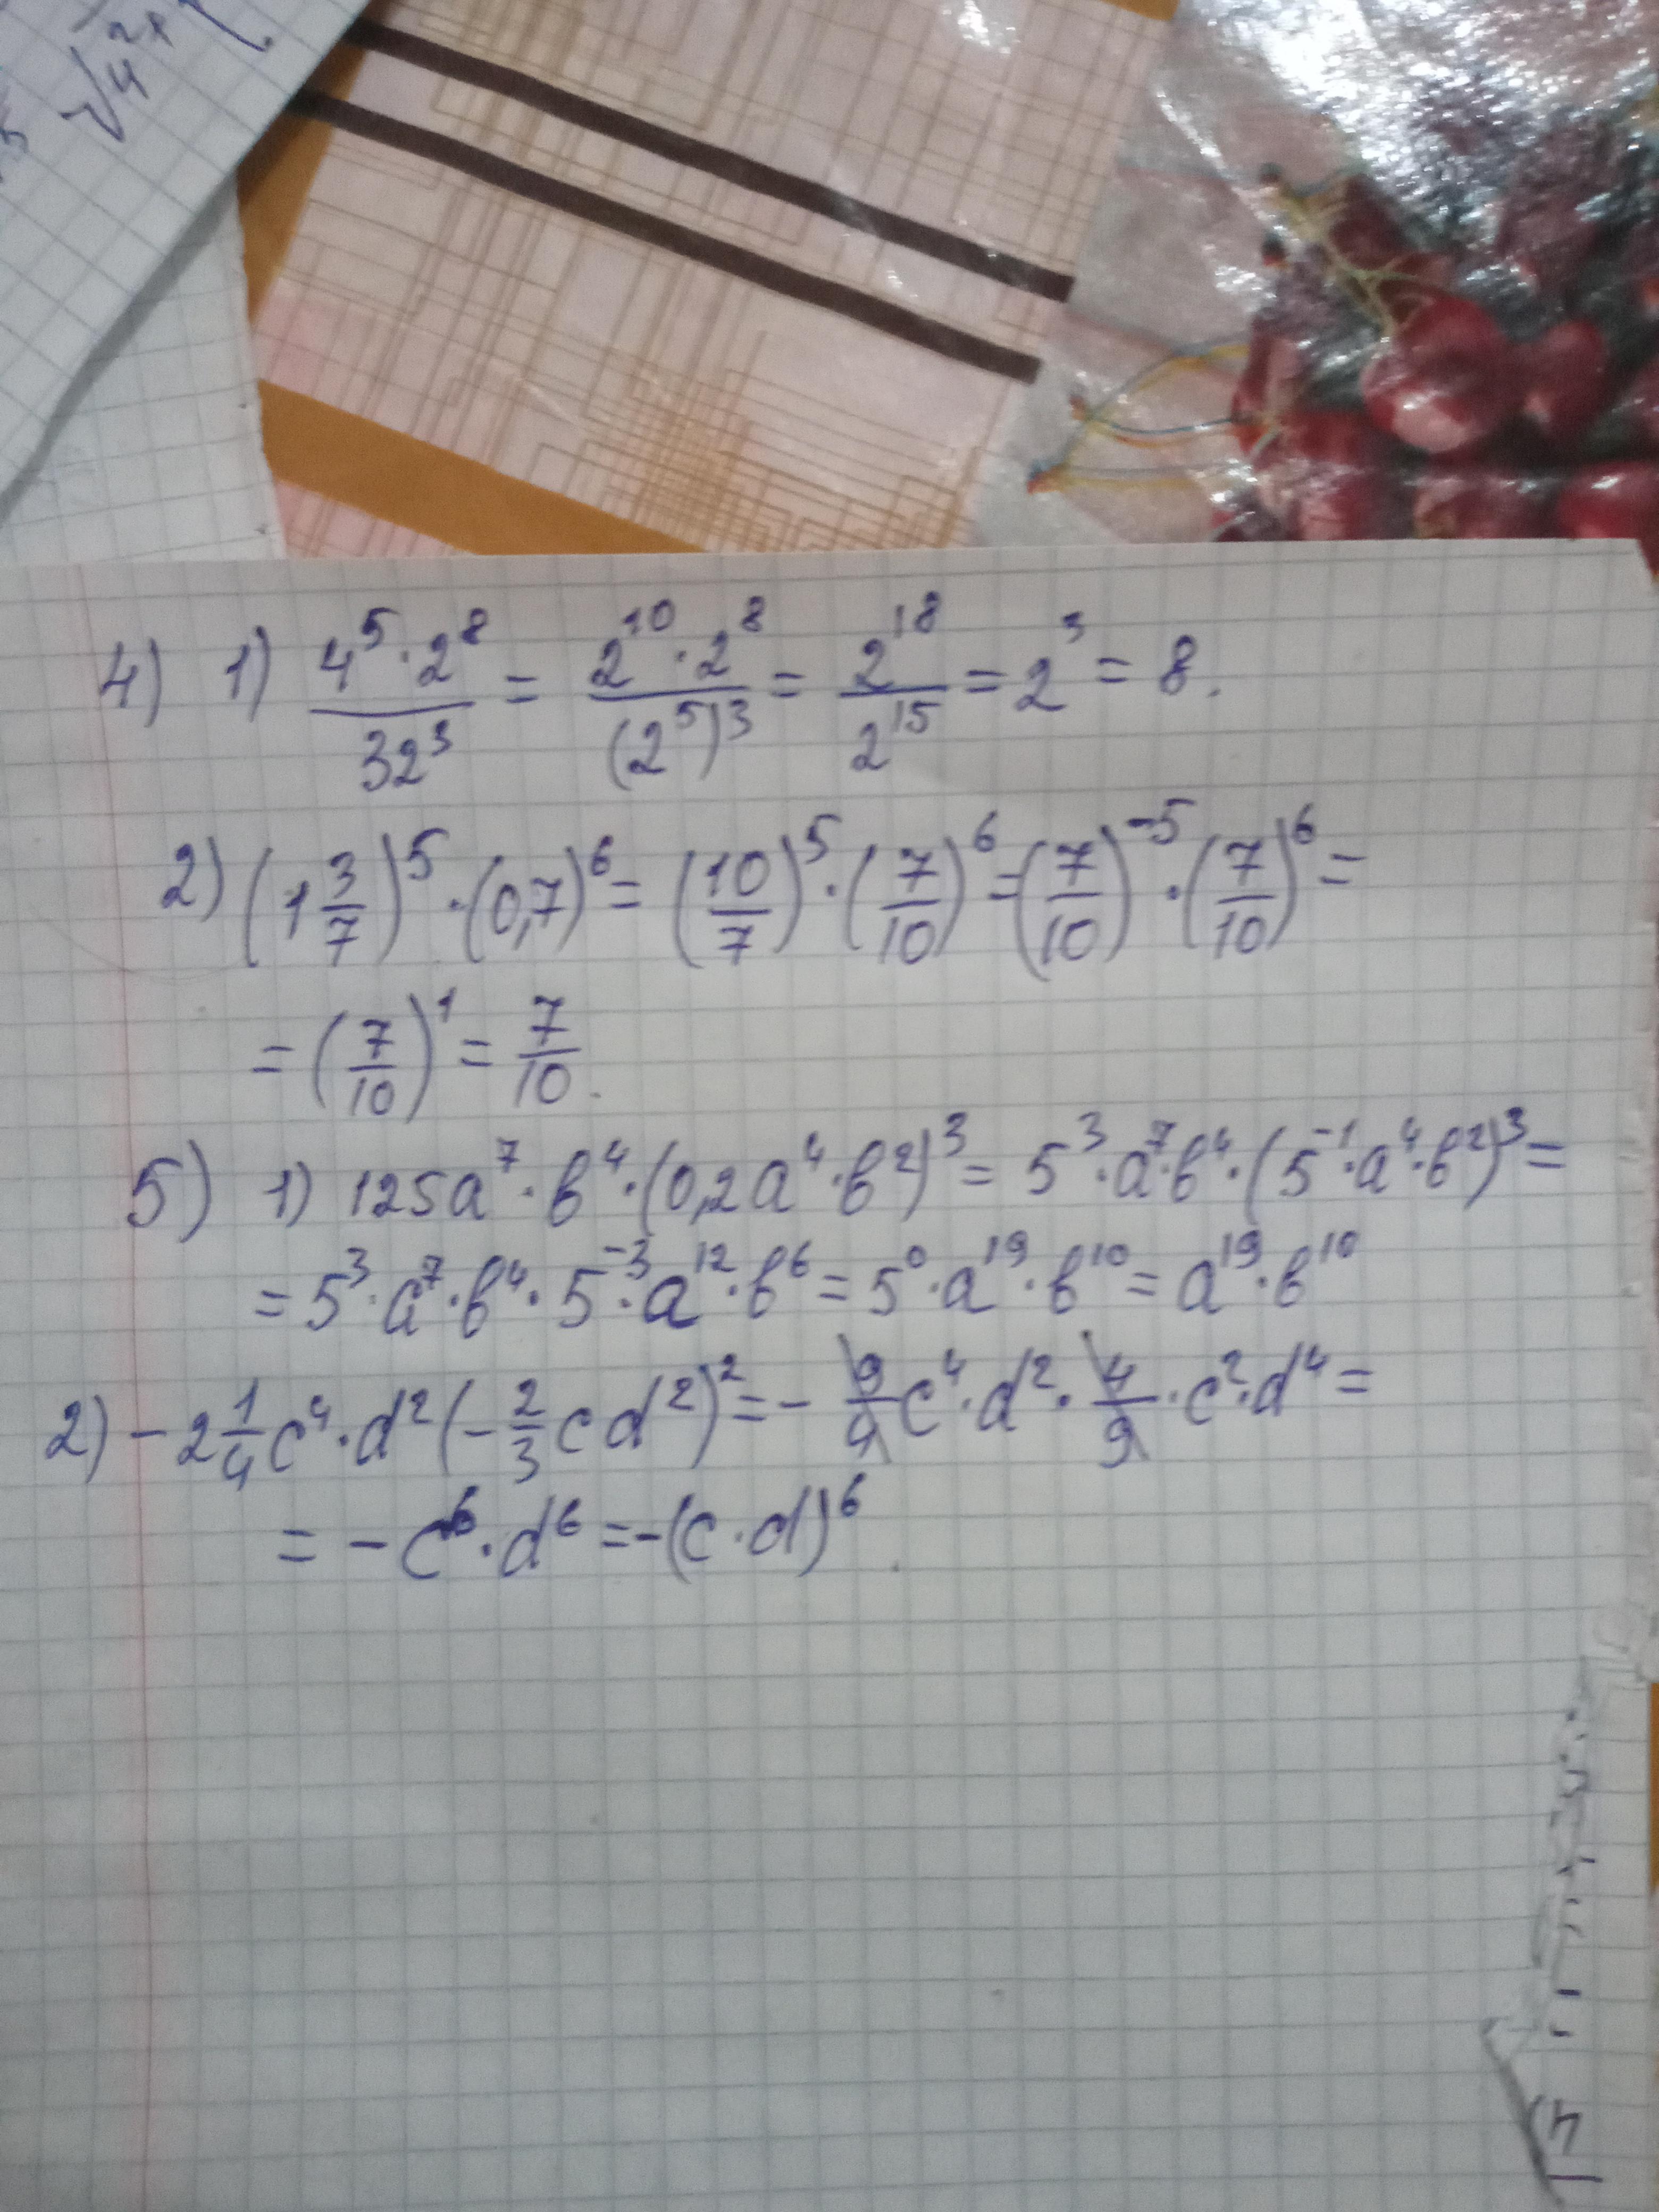 √4 2x
5
4) 1) 4⁵·2⁸/32³ = 2¹⁰·2⁸/(2⁵)³ = 2¹⁸/2¹⁵ = 2³ = 8.
2) (1 3/7)⁵·(0,7)⁶ = (10/7)⁵·(7/10)⁶ = (7/10)⁻⁵·(7/10)⁶ =
= (7/10)¹ = 7/10.
5) 1) 125a⁷·b⁴·(0,2a⁴·b²)³ = 5³·a⁷·b⁴·(5⁻¹·a⁴·b²)³ =
= 5³·a⁷·b⁴·5⁻³·a¹²·b⁶ = 5⁰·a¹⁹·b¹⁰ = a¹⁹·b¹⁰
2) -2 1/4 c⁴·d²(-2/3 cd²)² = -9/4 c⁴·d²·4/9·c²·d⁴ =
= -c⁶·d⁶ = -(c·d)⁶.
4)